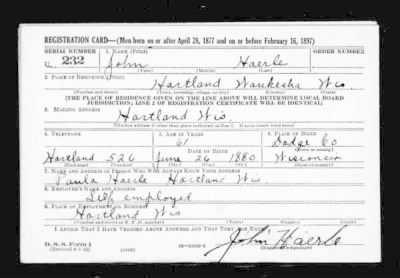 REGISTRATION CARD—(Men born on or after April 28, 1877 and on or before February 16, 1897)
SERIAL NUMBER 1. NAME (Print) ORDER NUMBER
U 232 John Haerle
(First) (Middle) (Last)
2. PLACE OF RESIDENCE (Print)
Hartland Waukesha Wis.
(Number and street) (Town, township, village, or city) (County) (State)
[THE PLACE OF RESIDENCE GIVEN ON THE LINE ABOVE WILL DETERMINE LOCAL BOARD
JURISDICTION; LINE 2 OF REGISTRATION CERTIFICATE WILL BE IDENTICAL]
3. MAILING ADDRESS
Hartland Wis.
[Mailing address if other than place indicated on line 2. If same insert word same]
4. TELEPHONE 5. AGE IN YEARS 6. PLACE OF BIRTH
61 Dodge Co
DATE OF BIRTH (Town or county)
Hartland 526 June 26 1880 Wisconsin
(Exchange) (Number) (Mo.) (Day) (Yr.) (State or country)
7. NAME AND ADDRESS OF PERSON WHO WILL ALWAYS KNOW YOUR ADDRESS
Paula Haerle Hartland Wis
8. EMPLOYER'S NAME AND ADDRESS
Self employed
9. PLACE OF EMPLOYMENT OR BUSINESS
Hartland Wis
(Number and street or R. F. D. number) (Town) (County) (State)
I AFFIRM THAT I HAVE VERIFIED ABOVE ANSWERS AND THAT THEY ARE TRUE.
D. S. S. Form 1
(Revised 4-1-42) (over) John Haerle
(Registrant's signature)